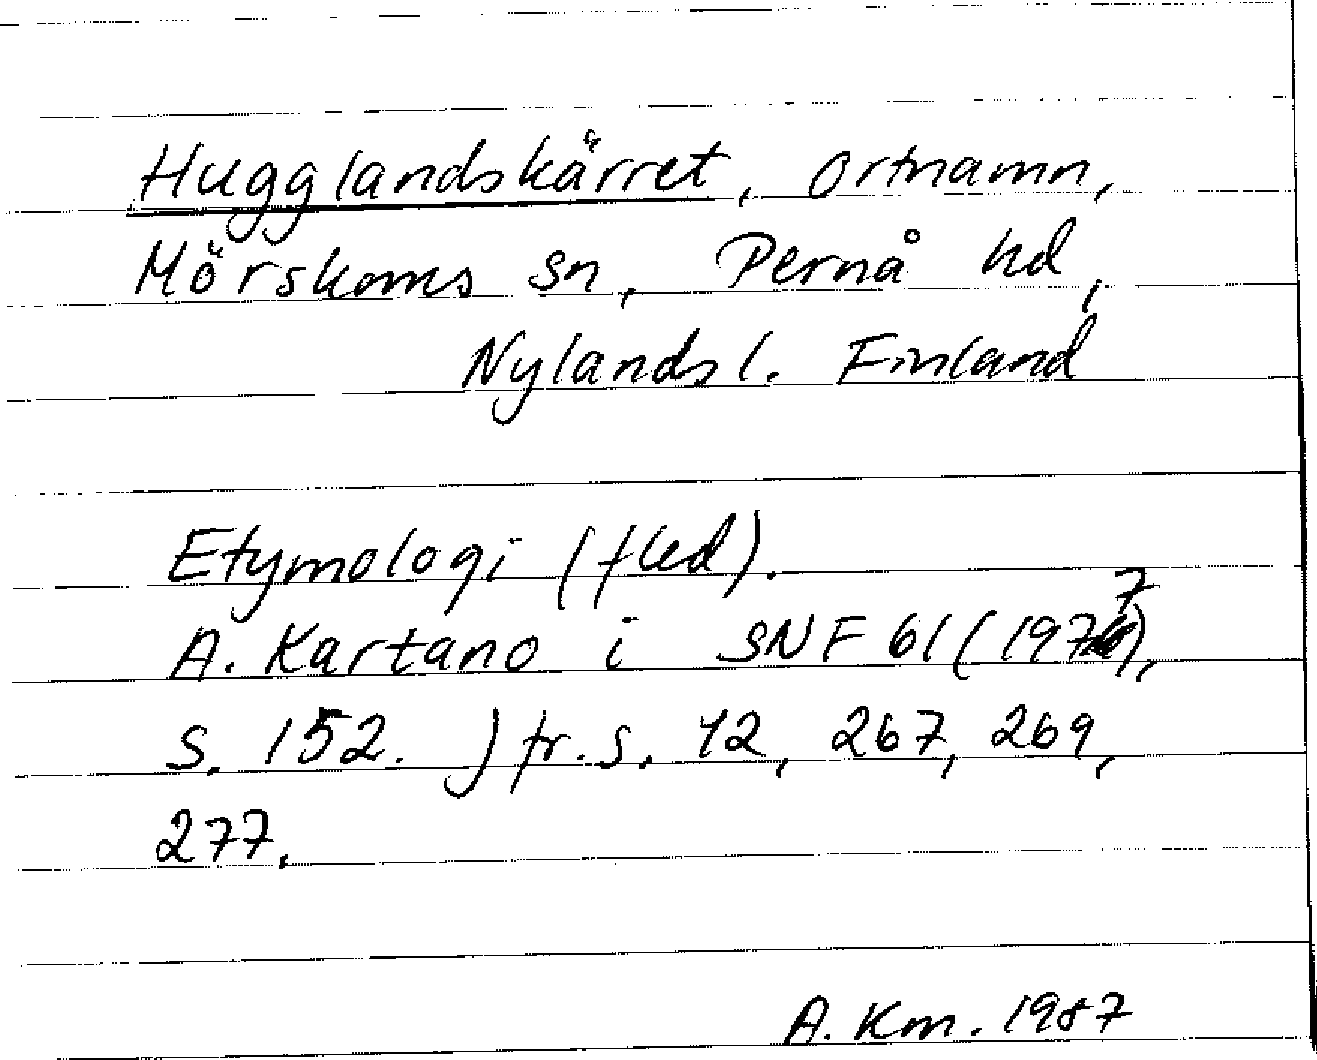 Hugglandskärret, ortnamn,
Mörskoms sn, Pernå hd,
Nylands l. Finland
Etymologi (fled).
A. Kartano i SNF 61 (1977),
s. 152. Jfr. s. 12, 267, 269,
277.
A. Km. 1987